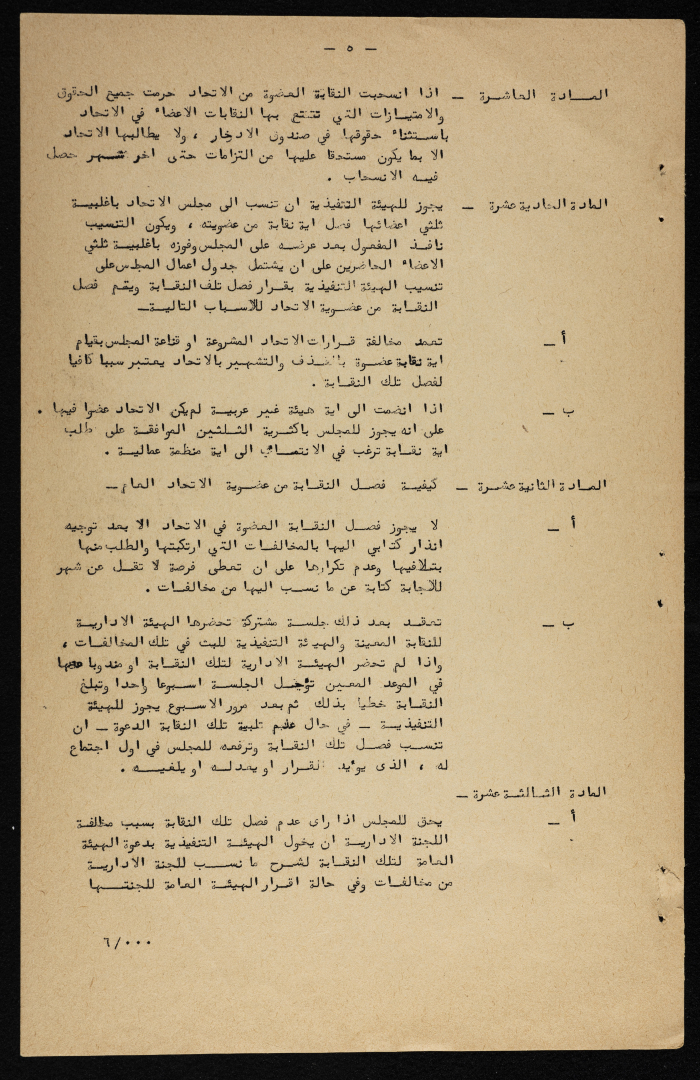 — ٥ —
المادة العاشرة — اذا انسحبت النقابة العضوة من الاتحاد حرمت جميع الحقوق
والامتيازات التي تتمتع بها النقابات الاعضاء في الاتحاد
باستثناء حقوقها في صندوق الادخار ، ولا يطالبها الاتحاد
الا بما يكون مستحقا عليها من التزامات حتى اخر شهر حصل
فيه الانسحاب .
المادة الحادية عشرة — يجوز للهيئة التنفيذية ان تنسب الى مجلس الاتحاد باغلبية
ثلثي اعضائها فصل اية نقابة من عضويته ، ويكون التنسيب
نافذ المفعول بعد عرضه على المجلس وفوزه باغلبية ثلثي
الاعضاء الحاضرين على ان يشتمل جدول اعمال المجلس على
تنسيب الهيئة التنفيذية بقرار فصل تلف النقابة ويتم فصل
النقابة من عضوية الاتحاد للاسباب التالية—
أ — تعمد مخالفة قرارات الاتحاد المشروعة او قناعة المجلس بقيام
اية نقابة عضوة بالقذف والتشهير بالاتحاد يعتبر سببا كافيا
لفصل تلك النقابة .
ب — اذا انضمت الى اية هيئة غير عربية لم يكن الاتحاد عضوا فيها .
على انه يجوز للمجلس باكثرية الثلثين الموافقة على طلب
اية نقابة ترغب في الانتساب الى اية منظمة عمالية .
المادة الثانية عشرة — كيفية فصل النقابة من عضوية الاتحاد العام—
أ — لا يجوز فصل النقابة العضوة في الاتحاد الا بعد توجيه
انذار كتابي اليها بالمخالفات التي ارتكبتها والطلب منها
بتلافيها وعدم تكرارها على ان تعطى فرصة لا تقل عن شهر
للاجابة كتابة عن ما نسب اليها من مخالفات .
ب — تعقد بعد ذلك جلسة مشتركة تحضرها الهيئة الادارية
للنقابة المعينة والهيئة التنفيذية للبث في تلك المخالفات ،
واذا لم تحضر الهيئة الادارية لتلك النقابة او مندوبا عنها
في الموعد المعين تؤجل الجلسة اسبوعا واحدا وتبلغ
النقابة خطيا بذلك ثم بعد مرور الاسبوع يجوز للهيئة
التنفيذية — في حال عدم تلبية تلك النقابة الدعوة — ان
تنسب فصل تلك النقابة وترفعه للمجلس في اول اجتماع
له ، الذى يؤيد القرار او يعدله او يلغيه .
المادة الثالثة عشرة —
أ — يحق للمجلس اذا راى عدم فصل تلك النقابة بسبب مخالفة
اللجنة الادارية ان يخول الهيئة التنفيذية بدعوة الهيئة
العامة لتلك النقابة لشرح ما نسب للجنة الادارية
من مخالفات وفي حالة اقرار الهيئة العامة للجنتها
٦/٠٠٠